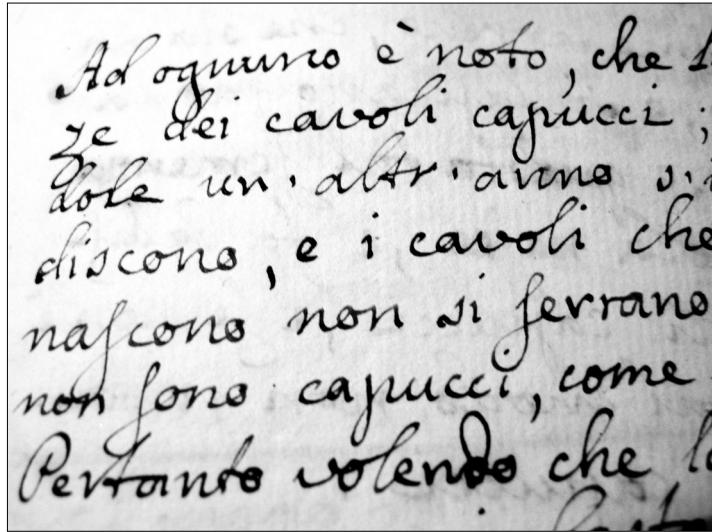 Ad ognuno è noto, che
ze dei cavoli capucci;
dole un' altr' anno
discono, e i cavoli che
naſcono non si ſerrano
non ſono capucci, come
Pertanto volendo che